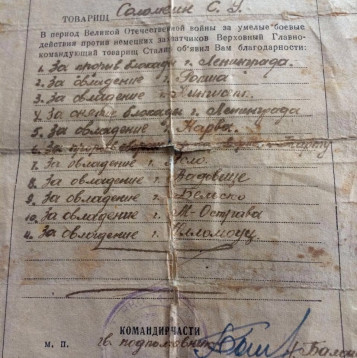 ТОВАРИЩ Соломкин С. У.
В период Великой Отечественной войны за умелые боевые
действия против немецких захватчиков Верховный Главно-
командующий товарищ Сталин об'явил Вам благодарности:
1. За прорыв блокады г. Ленинграда.
2. За овладение г. Ропша
3. За овладение г.
4. За снятие блокады г. Ленинграда
5. За овладение г. Нарва.
6. За прорыв г. Тарту
7. За овладение г.
8. За овладение г. Вадовице
9. За овладение г. Бельско
10. За овладение г. М-Острава
11. За овладение г. Оломоуц
КОМАНДИР ЧАСТИ
М. П. гв. подполковник